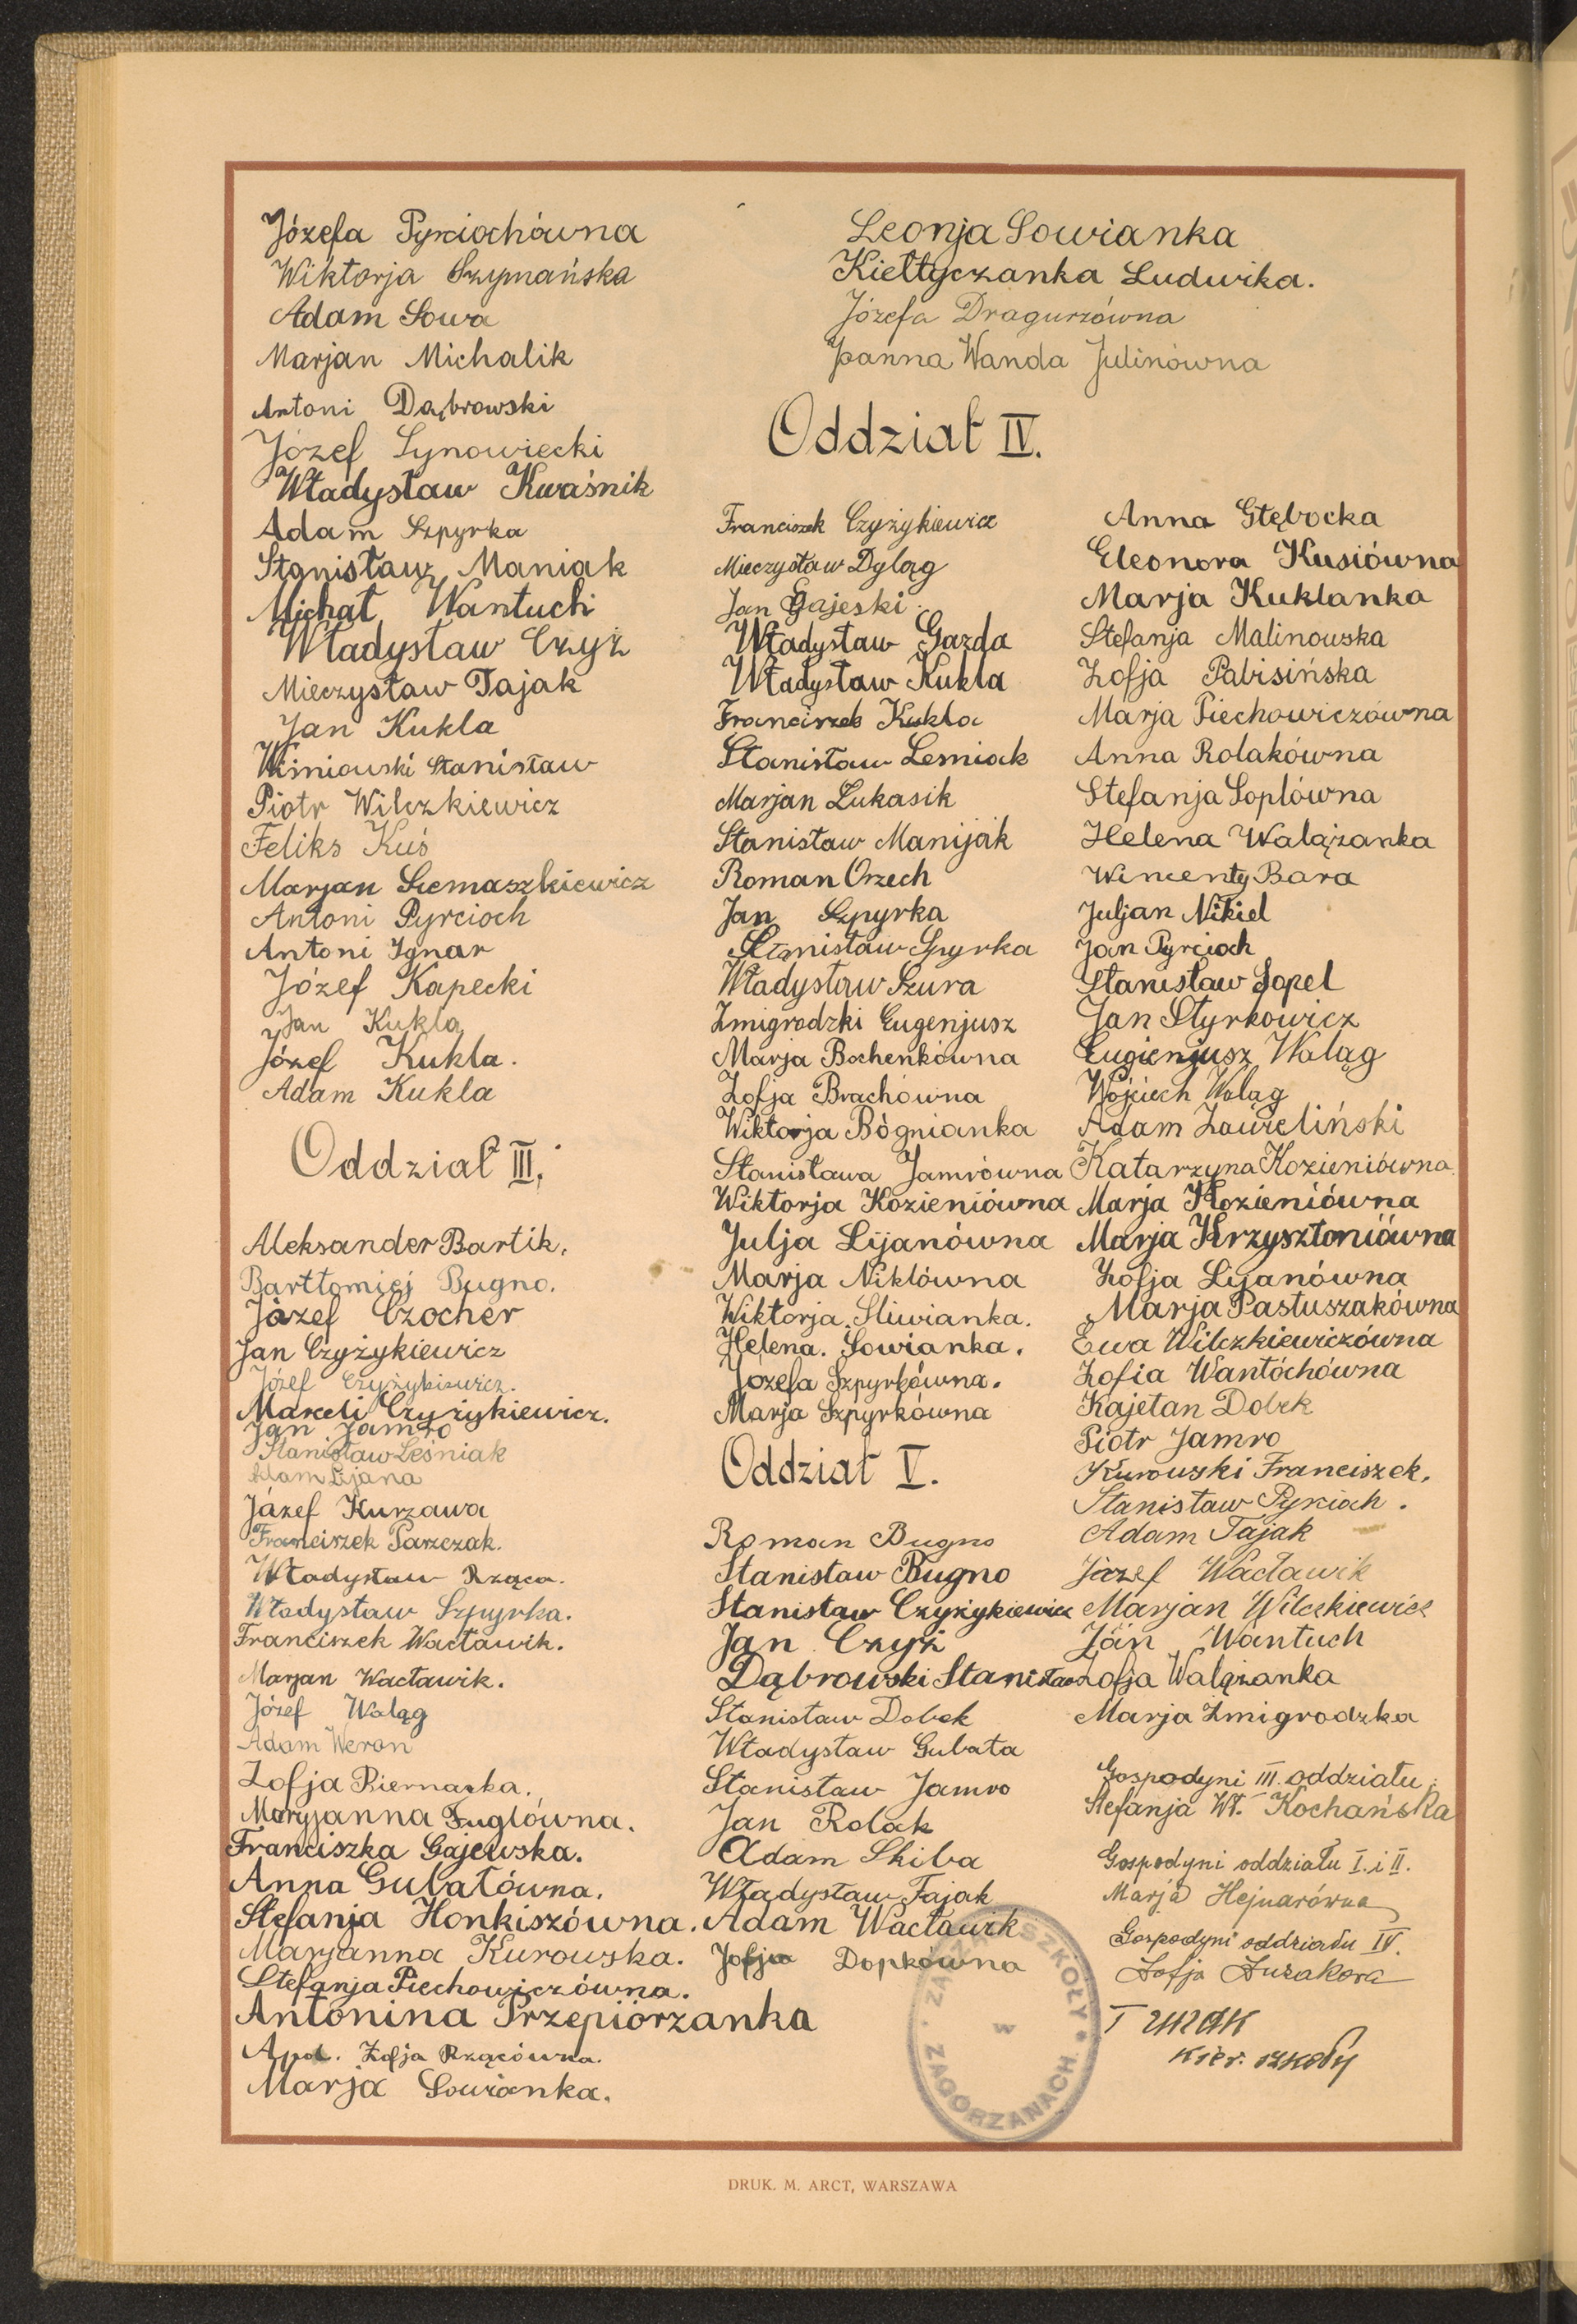 Józefa Pyrciochówna
Wiktorja Szymańska
Adam Sowa
Marjan Michalik
Antoni Dąbrowski
Józef Synowiecki
Władysław Kwaśnik
Adam Szpyrka
Stanisław Maniak
Michał Wantuch
Władysław Czyż
Mieczysław Tajak
Jan Kukla
Wiśniowski Stanisław
Piotr Wilczkiewicz
Feliks Kuś
Marjan Siemaszkiewicz
Antoni Pyrcioch
Antoni Ignar
Józef Kapecki
Jan Kukla
Józef Kukla.
Adam Kukla
Leonja Sowianka
Kiełtyczanka Ludwika.
Józefa Dragurzówna
Joanna Wanda Julinówna
Oddział III.
Aleksander Bartik.
Bartłomiej Bugno.
Józef Czocher
Jan Czyżykiewicz
Józef Czyżykiewicz.
Marceli Czyżykiewicz.
Jan Jamro
Stanisław Leśniak
Adam Lijana
Józef Kurzawa
Franciszek Parzczak.
Władysław Rząca.
Władysław Szpyrka.
Franciszek Wacławik.
Marjan Wacławik.
Józef Waląg
Adam Weron
Zofja Biernacka.
Maryjanna Fuglówna.
Franciszka Gajewska.
Anna Gubałówna.
Stefanja Honkiszówna.
Marjanna Kurowska.
Stefanja Piechowiczówna.
Antonina Przepiórzanka
Apol. Zofja Rzącówna.
Marja Sowianka.
Oddział IV.
Franciszek Czyżykiewicz
Mieczysław Dyląg
Jan Gajeski.
Władysław Gazda
Władysław Kukla
Franciszek Kukla
Stanisław Leśniak
Marjan Łukasik
Stanisław Manijak
Roman Orzech
Jan Szpyrka
Stanisław Spyrka
Władysław Szura
Żmigrodzki Eugenjusz
Marja Bochenkówna
Zofja Brachówna
Wiktorja Bògnianka
Stanisława Jamrówna
Wiktorja Kozieniówna
Julja Lijanówna
Marja Niklówna
Wiktorja Śliwianka.
Helena. Sowianka.
Józefa Szpyrkówna.
Marja Szpyrkówna
Anna Głębocka
Eleonora Kusiówna
Marja Kuklanka
Stefanja Malinowska
Zofja Pabisińska
Marja Piechowiczówna
Anna Rolakówna
Stefanja Soplówna
Helena Walążanka
Wincenty Bara
Juljan Nikiel
Jan Pyrcioch
Stanisław Sopel
Jan Styrkowicz
Eugienjusz Waląg
Wojciech Waląg
Adam Zawieliński
Katarzyna Kozieniówna.
Marja Kozieniówna
Marja Krzysztoniówna
Zofja Lijanówna
Marja Pastuszakówna
Ewa Wilczkiewiczówna
Zofia Wantóchówna
Oddział V.
Roman Bugno
Stanisław Bugno
Stanisław Czyżykiewicz
Jan Czyż
Dąbrowski Stanisław
Stanisław Dobek
Władysław Gubała
Stanisław Jamro
Jan Rolak
Adam Skiba
Władysław Tajak
Adam Wacławik
Zofja Dopkówna
Kajetan Dobek
Piotr Jamro
Kurowski Franciszek.
Stanisław Pyrcioch.
Adam Tajak
Józef Wacławik
Marjan Wilczkiewicz
Jan Wantuch
Zofja Walążanka
Marja Żmigrodzka
Gospodyni III. oddziału.
Stefanja Wł. Kochańska
Gospodyni oddziału I. i II.
Marja Hejnarówna
Gospodyni oddziału IV.
Zofja Żurakova
kier. szkoły
SZKOŁY
W
ZAGORZANACH
DRUK. M. ARCT, WARSZAWA